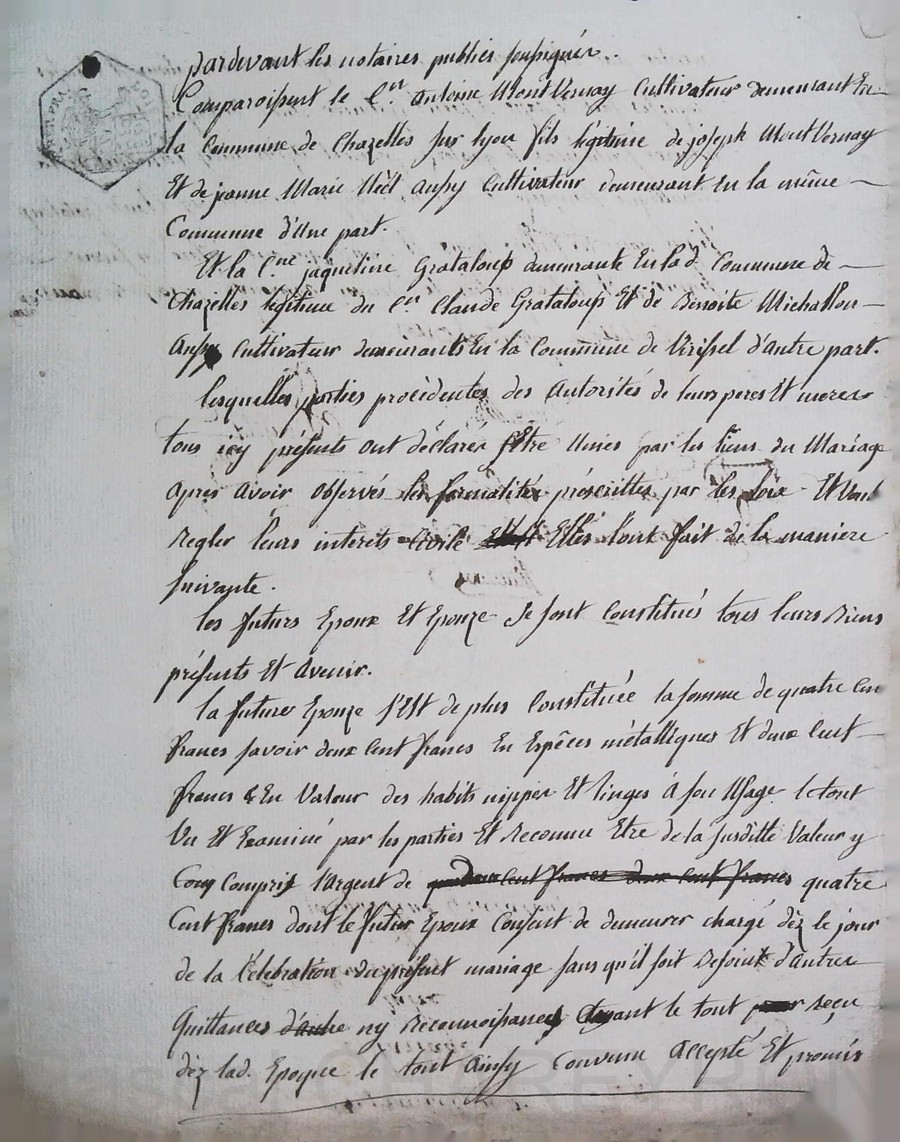 pardevant les notaires publics soussignés.
Comparoissent le C.en antoine Mont Vernay Cultivateur demeurant En
la Commune de Chazelles sur lyon fils légitimie de joseph Mont Vernay
Et de jeanne Marie aussy Cultivateur demeurant En la même
Commune d'Une part.
Et la C.ne jaqueline Grataloup demeurante En lad. Commune de
Chazelles légitime du C.en Claude Grataloup Et de Benoite Michallon
Aussy Cultivateur demeurants En la Commune de Virissel d'autre part.
lesquelles parties procèdentes des Autorités de leurs peres Et meres
tous icy présents ont déclarés Etre Unies par les liens du Mariage
Apres Avoir Observés les formalités préscrittes par les loix Et
Regler leurs interets Civile Elles l'ont fait de la maniere
suivante.
les futurs Epoux Et Epouze Se sont Constitués tous leurs Biens
présents Et Avenir.
la future Epouze s'Est de plus Constituée la somme de quatre Cen
francs savoir deux Cent francs En Espêces métalliques Et deux Cent
francs En Valeur des habits nippes Et linges à son Usage. le tout
Vu Et Examiné par les parties Et Reconnu Etre de la susditte Valeur y
Comprit l'Argent de deux Cent francs deux Cent francs quatre
Cent francs dont le futur Epoux Consent de demeurer chargé dèz le jour
de la Célebration du présent mariage sans qu'il soit Besoint d'autres
Quittances d'autre ny Reconnoissances le tout pour Reçu
dèz lad. Epoque le tout Ainsy Convenu Accepté Et promis